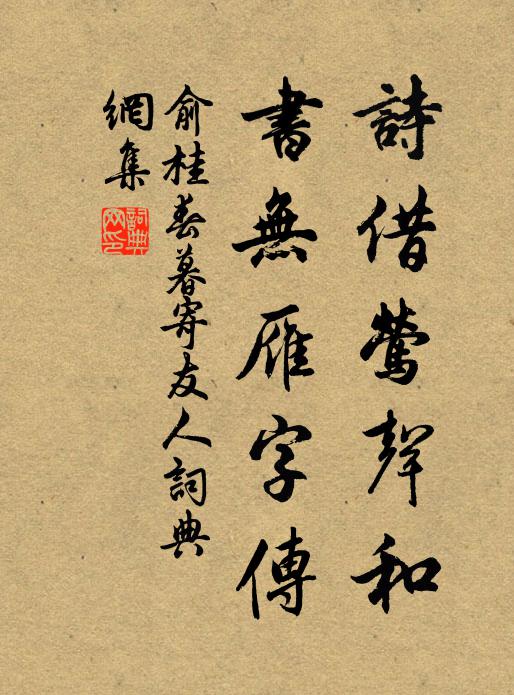 詩借鶯聲和
書無雁字傳
俞桂春暮寄友人詞典
網集
詞典網印